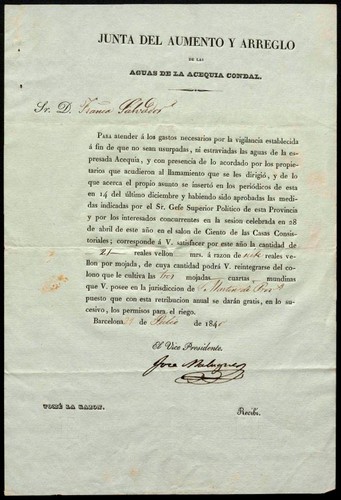 JUNTA DEL AUMENTO Y ARREGLO
DE LAS
AGUAS DE LA ACEQUIA CONDAL.
Sr. D. Franco Salvador
PARA atender á los gastos necesarios por la vigilancia establecida
á fin de que no sean usurpadas, ni estraviadas las aguas de la es-
presada Acequia, y con presencia de lo acordado por los propie-
tarios que acudieron al llamamiento que se les dirigió, y de lo
que acerca el propio asunto se insertó en los periódicos de esta
en 14 del último diciembre y habiendo sido aprobadas las me-
didas indicadas por el Sr. Gefe Superior Político de esta Provincia
y por los interesados concurrentes en la sesion celebrada en 28
de abril de este año en el salon de Ciento de las Casas Consis-
toriales; corresponde á V. satisfacer por este año la cantidad de
21 reales vellon mrs. á razon de siete reales ve-
llon por mojada, de cuya cantidad podrá V. reintegrarse del co-
lono que le cultiva las tres mojadas cuartas, mundinas
que V. posee en la jurisdiccion de Sn. Martin de Pro.s
puesto que con esta retribucion anual se darán gratis, en lo su-
cesivo, los permisos para el riego.
Barcelona de Julio de 184
El Vice Presidente.
José
TOMÉ LA RAZON.
Recibí.